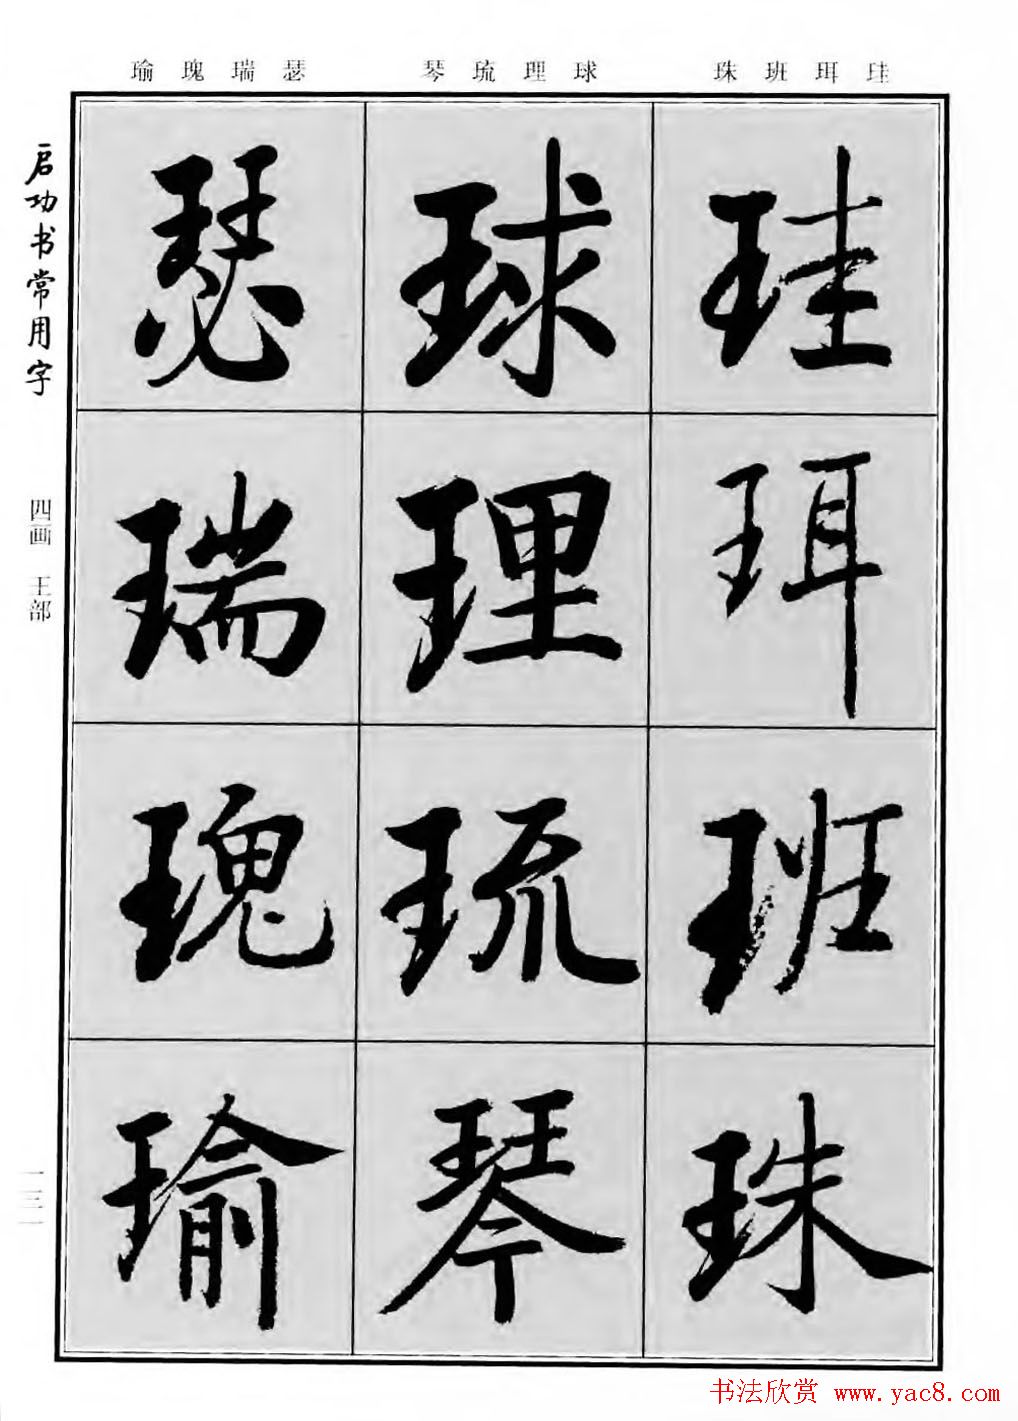 珪珥班珠 球理琉琴 瑟瑞瑰瑜
珪珥班珠
球理琉琴
瑟瑞瑰瑜
启功书常用字
四画 王部
一三一
书法欣赏 www.yac8.com